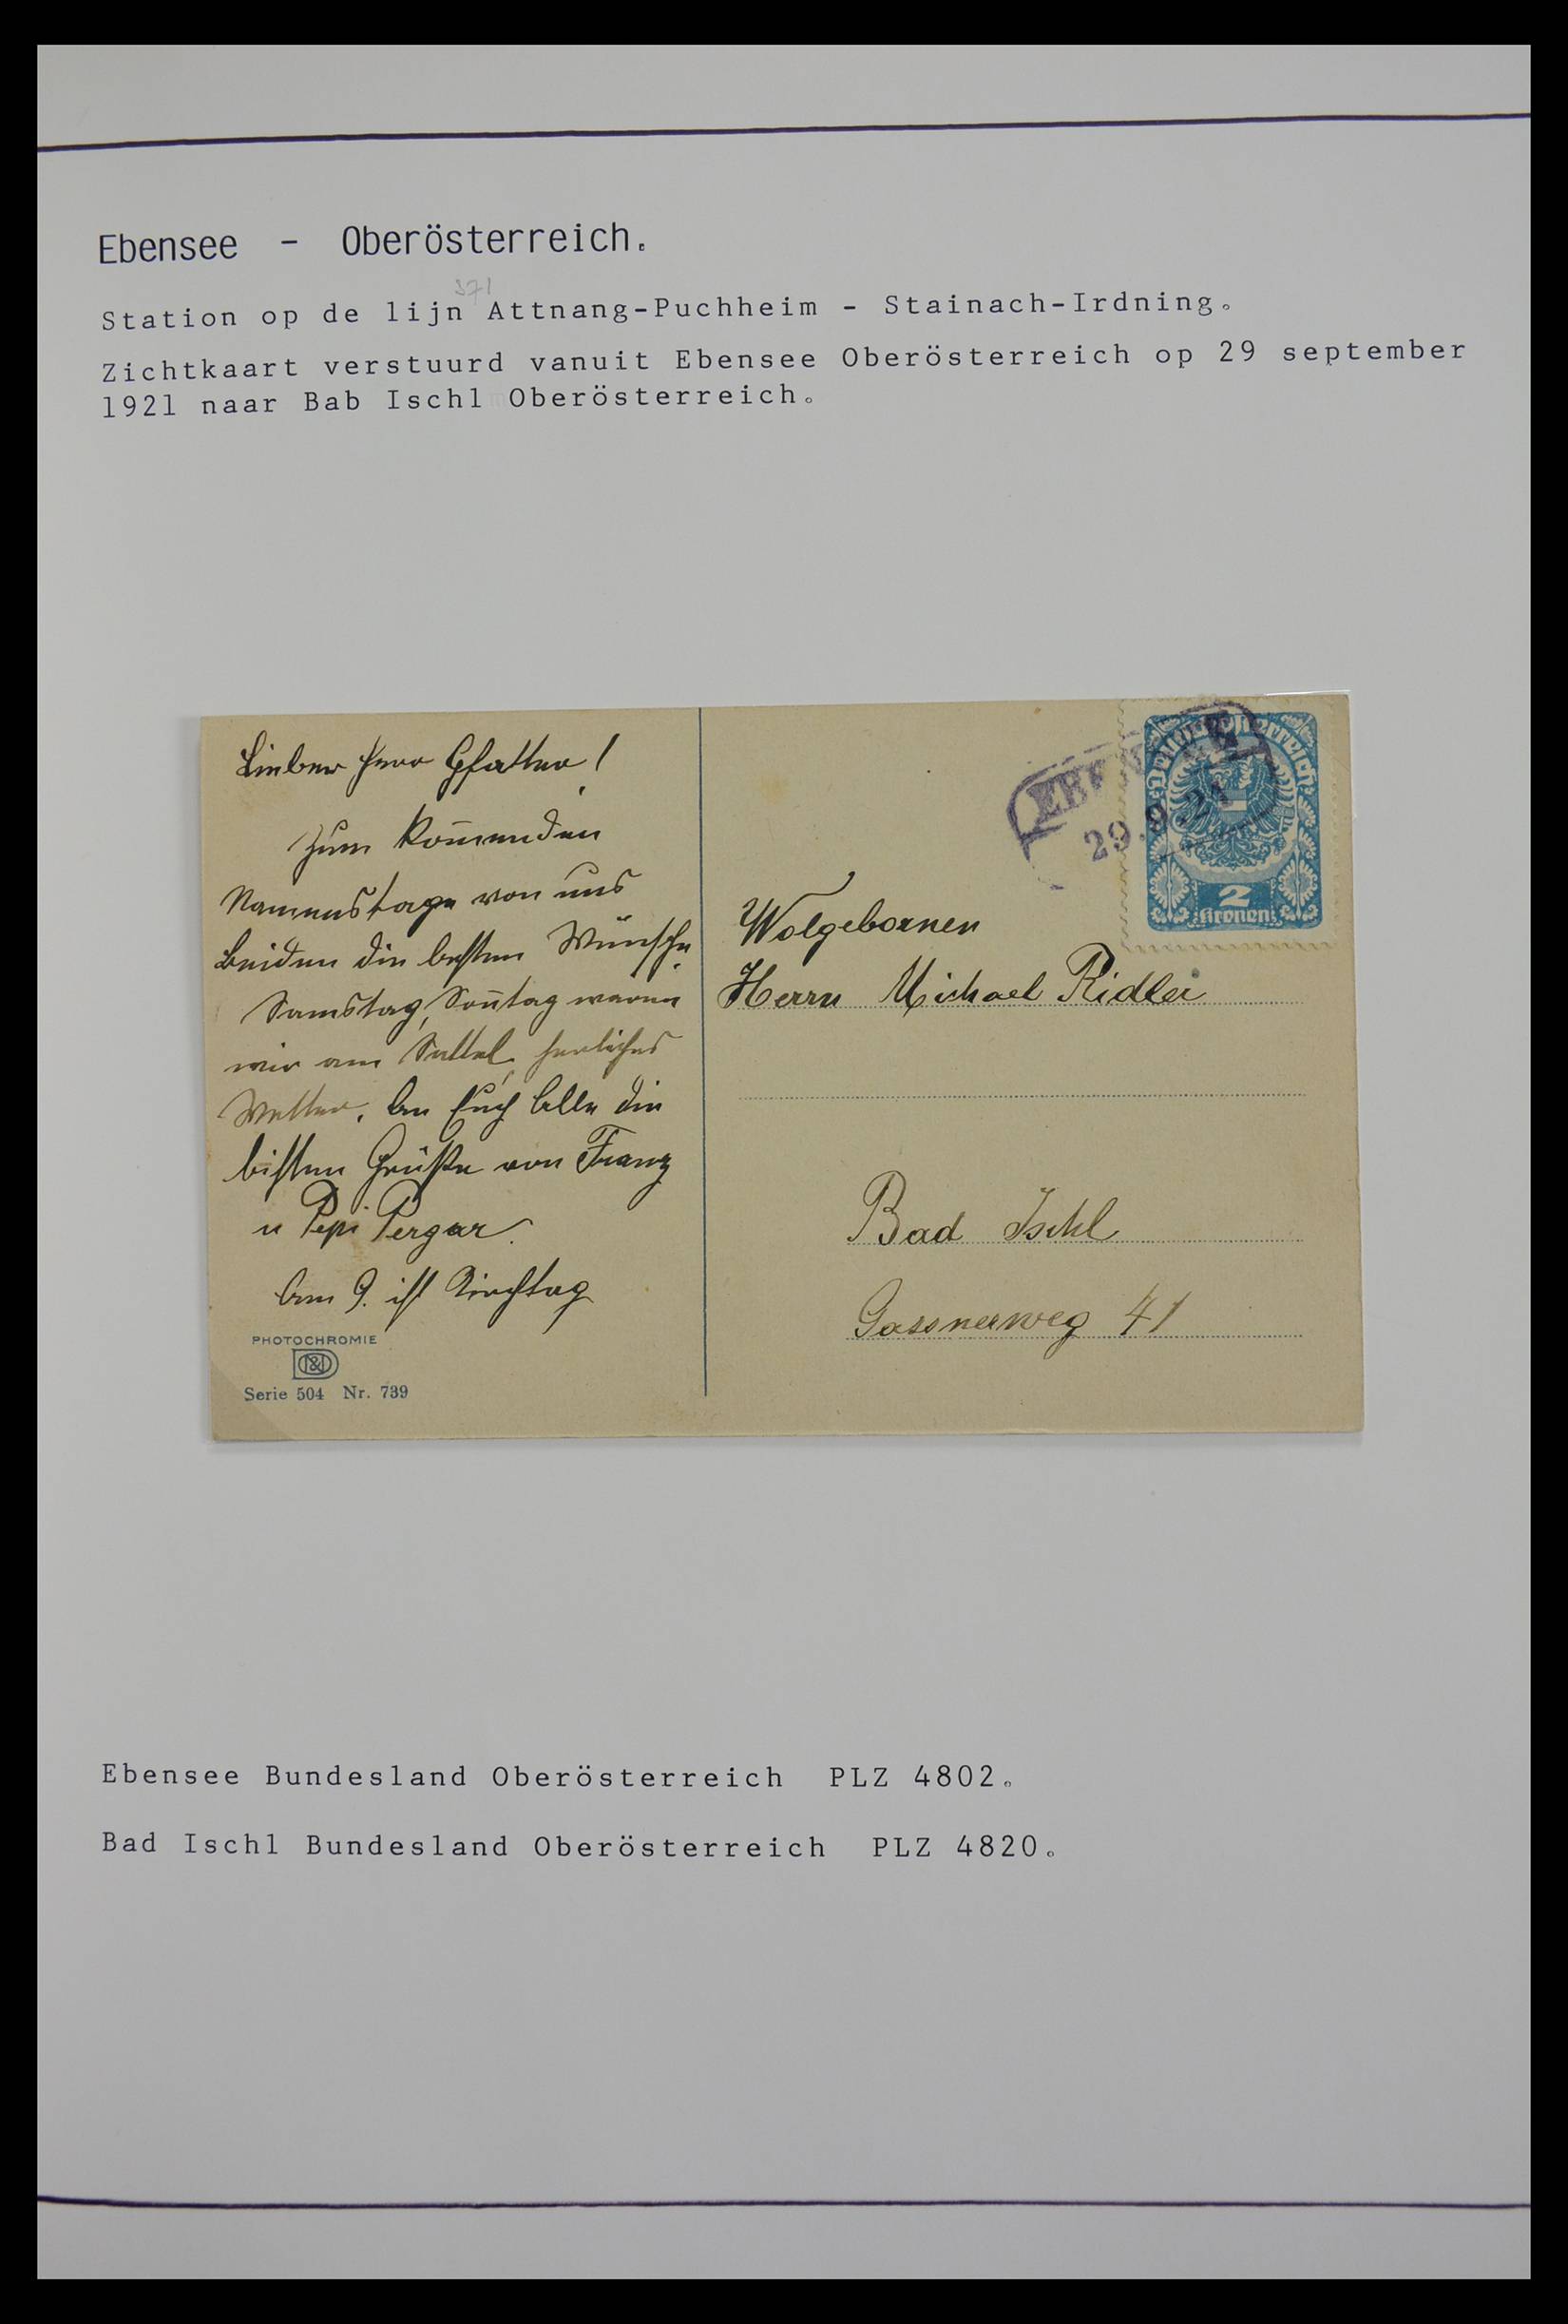 Ebensee - Oberösterreich.
371
Station op de lijn Attnang-Puchheim - Stainach-Irdning.
Zichtkaart verstuurd vanuit Ebensee Oberösterreich op 29 september
1921 naar Bab Ischl Oberösterreich.
Lieber Herr Gfatter!
Zum kom̄enden
Namenstage von uns
Beiden die besten Wünsche.
Samstag, Son̄tag waren
wir am Sattel, herliches
Wetter. An Euch Alle die
besten Grüße von Franz
u Pepi Pergar.
Am 9. ist Kirchtag
PHOTOCHROMIE
Serie 504 Nr. 739
29.9.21
Deutschösterreich
2
Kronen
Wolgebornen
Herrn Michael Ridler
Bad Ischl
Gassnerweg 41
Ebensee Bundesland Oberösterreich PLZ 4802.
Bad Ischl Bundesland Oberösterreich PLZ 4820.